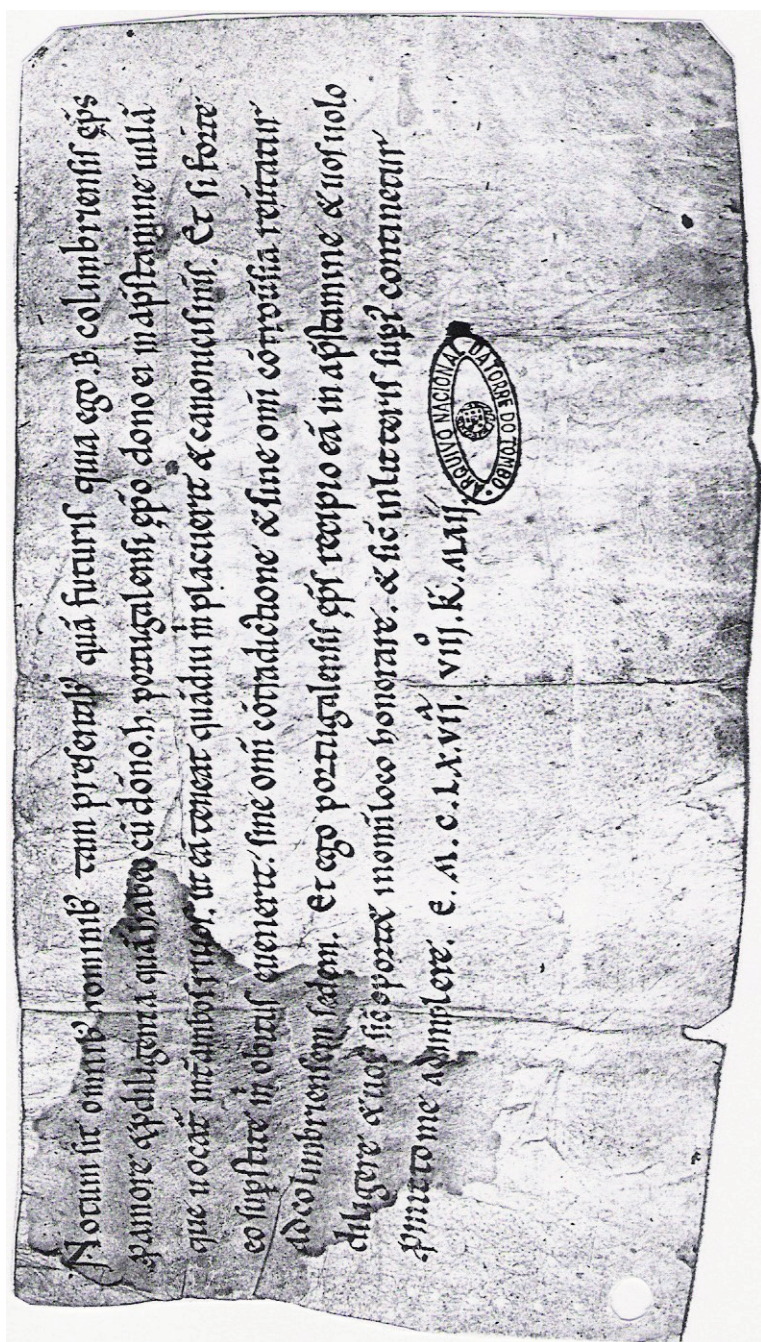 Notum sit omnib; hominib; tam presentib; quã futuris quia ego .B. colimbriensis ep̃s
p amore & p diligentia quã habeo cũ dõno .h. portugalensi ep̃o dono ei in ap̃stamine uillã
que uocat̃ ut eã teneat quãdiu m̃ placuerit & canonicis meis. Et si forte
eo sup̃stite m̃ obitus euenerit. sine om̃i cõtradictione & sine om̃i cõtrou̾sia reũtatur
ad colimbriensem sedem. Et ego portugalensis ep̃s recipio eã in ap̃stamine & uos uolo
diligere & uos sic oportet in om̃i loco honorare. & sic in litteris sup̾ continetur
p̃mitto me adimplere. E. M. C. LX. vii. viii. K. Maii.
ARQUIVO NACIONAL DA TORRE DO TOMBO